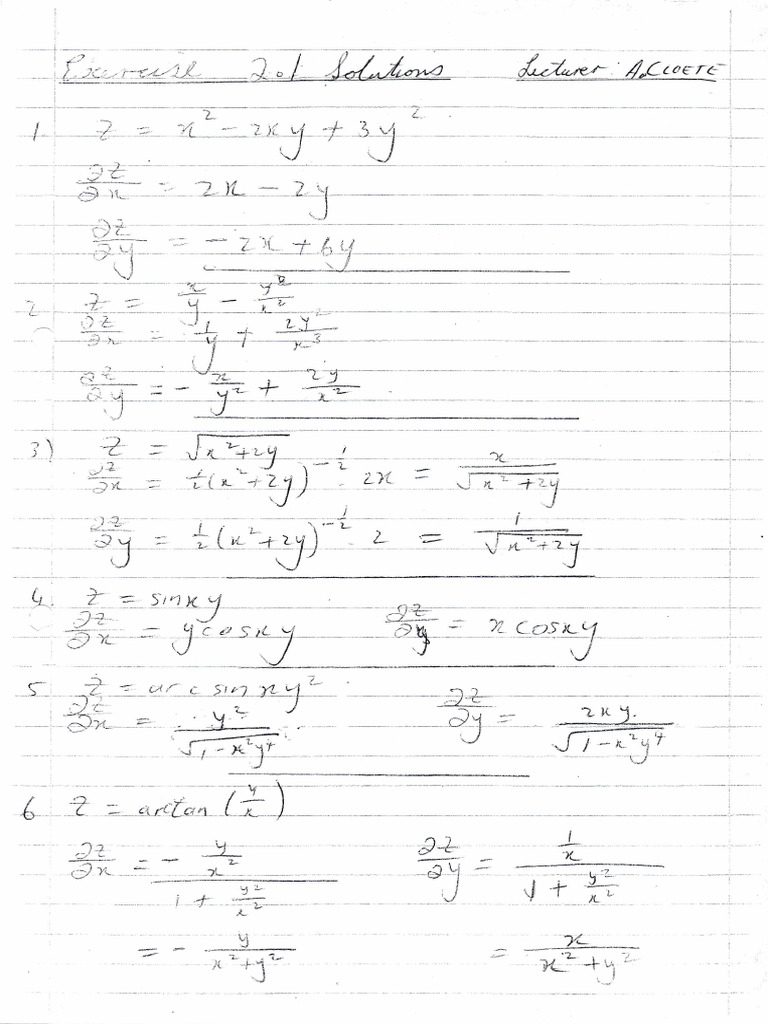 Exercise 2.1 Solutions Lecturer: A.CLOETE
1. z = x² - 2xy + 3y²
∂z/∂x = 2x - 2y
∂z/∂y = -2x + 6y
2 z = x/y - y²/x²
∂z/∂x = 1/y + 2y²/x³
∂z/∂y = - x/y² + 2y/x²
3) z = √(x²+2y)
∂z/∂x = ½(x²+2y)^(-½) · 2x = x/√(x²+2y)
∂z/∂y = ½(x²+2y)^(-½) · 2 = 1/√(x²+2y)
4. z = sinxy
∂z/∂x = ycosxy ∂z/∂y = xcosxy
5 z = arcsinxy²
∂z/∂x = y²/√(1-x²y⁴) ∂z/∂y = 2xy/√(1-x²y⁴)
6 z = arctan(y/x)
∂z/∂x = - (y/x²)/(1 + y²/x²) ∂z/∂y = (1/x)/(1 + y²/x²)
= - y/(x²+y²) = x/(x²+y²)